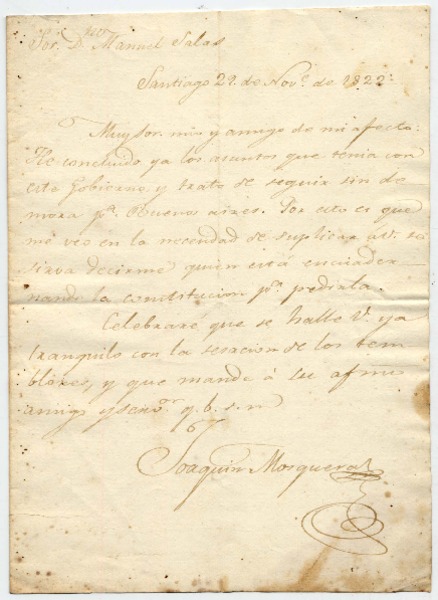 Sor. Dn. Manuel Salas
Santiago 29. de Nove. de 1822.
Muy Sor. mio y amigo de mi afecto:
He concluido ya los asuntos que tenia con
este Gobierno, y trato de seguir sin de
mora pa. Buenos aires. Por esto es que
me veo en la necesidad de suplicar a V. se
sirva decirme quien está encuader
nando la constitucion pa. pedirla.
Celebrare que se halle V. ya
tranquilo con la sesacion de los tem
blores, y que mande á su afmo
amigo y q. b. s. m
Joaquin Mosquera